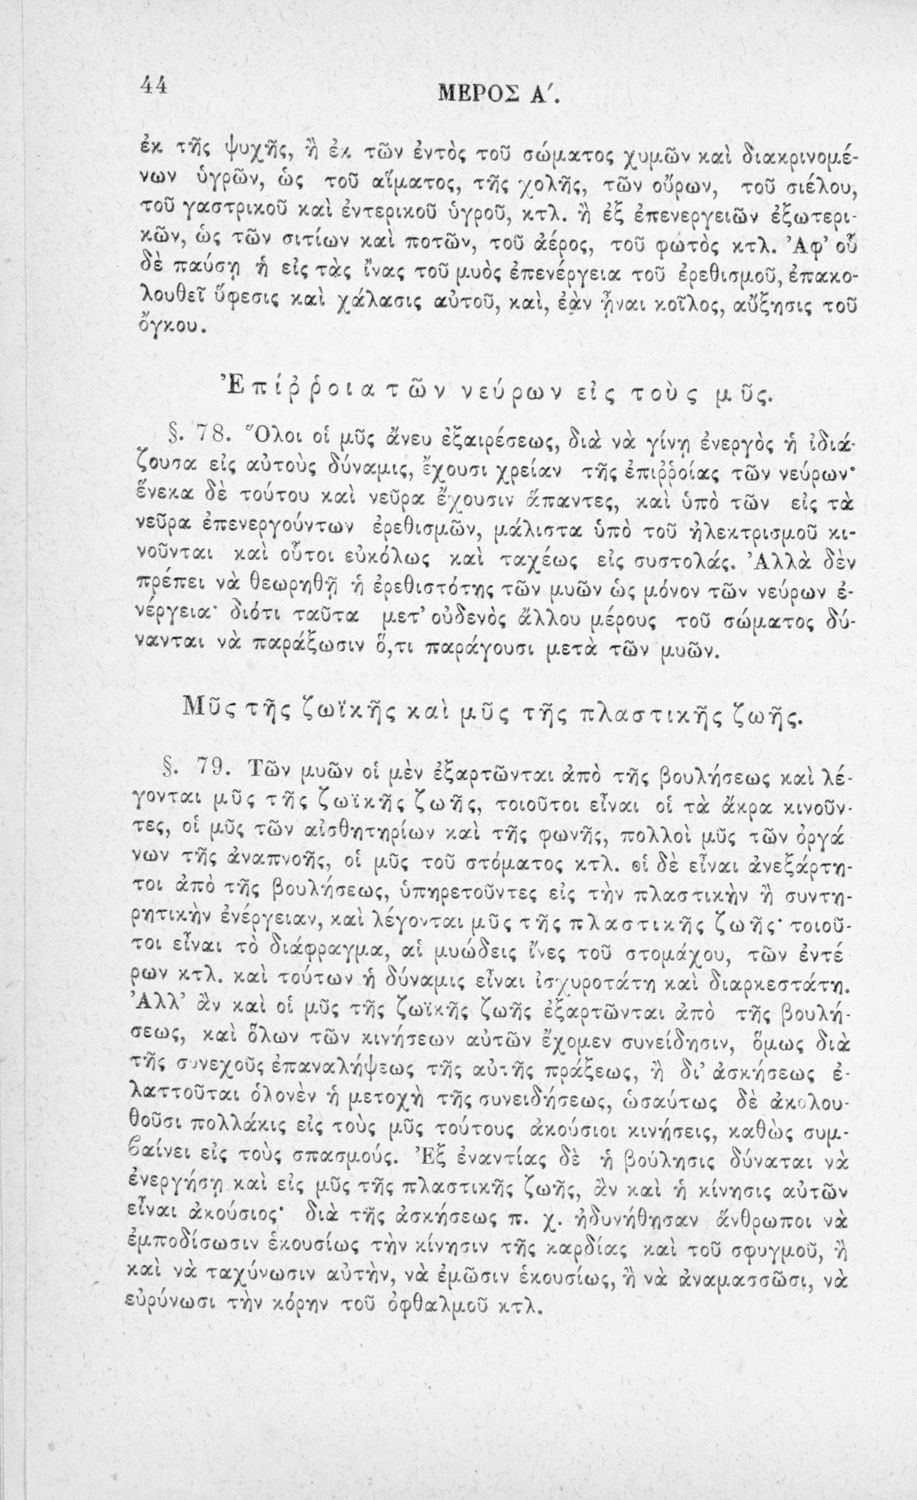 44
ΜΕΡΟΣ Α΄.
ἐκ τῆς ψυχῆς, ἢ ἐκ τῶν ἐντὸς τοῦ σώματος χυμῶν καὶ διακρινομέ-
νων ὑγρῶν, ὡς τοῦ αἵματος, τῆς χολῆς, τῶν οὔρων, τοῦ σιέλου,
τοῦ γαστρικοῦ καὶ ἐντερικοῦ ὑγροῦ, κτλ. ἢ ἐξ ἐπενεργειῶν ἐξωτερι-
κῶν, ὡς τῶν σιτίων καὶ ποτῶν, τοῦ ἀέρος, τοῦ φωτὸς κτλ. Ἀφ’ οὗ
δὲ παύσῃ ἡ εἰς τὰς ἶνας τοῦ μυὸς ἐπενέργεια τοῦ ἐρεθισμοῦ, ἐπακο-
λουθεῖ ὕφεσις καὶ χάλασις αὐτοῦ, καὶ, ἐὰν ᾖναι κοῖλος, αὔξησις τοῦ
ὄγκου.
Ἐπίῤῥοια τῶν νεύρων εἰς τοὺς μῦς.
§. 78. Ὅλοι οἱ μῦς ἄνευ ἐξαιρέσεως, διὰ νὰ γίνῃ ἐνεργὸς ἡ ἰδιά-
ζουσα εἰς αὐτοὺς δύναμις, ἔχουσι χρείαν τῆς ἐπιῤῥοίας τῶν νεύρων·
ἕνεκα δὲ τούτου καὶ νεῦρα ἔχουσιν ἅπαντες, καὶ ὑπὸ τῶν εἰς τὰ
νεῦρα ἐπενεργούντων ἐρεθισμῶν, μάλιστα ὑπὸ τοῦ ἠλεκτρισμοῦ κι-
νοῦνται καὶ οὗτοι εὐκόλως καὶ ταχέως εἰς συστολάς. Ἀλλὰ δὲν
πρέπει νὰ θεωρηθῇ ἡ ἐρεθιστότης τῶν μυῶν ὡς μόνον τῶν νεύρων ἐ-
νέργεια· διότι ταῦτα μετ’ οὐδενὸς ἄλλου μέρους τοῦ σώματος δύ-
νανται νὰ παράξωσιν ὅ,τι παράγουσι μετὰ τῶν μυῶν.
Μῦς τῆς ζωϊκῆς καὶ μῦς τῆς πλαστικῆς ζωῆς.
§. 79. Τῶν μυῶν οἱ μὲν ἐξαρτῶνται ἀπὸ τῆς βουλήσεως καὶ λέ-
γονται μῦς τῆς ζωϊκῆς ζωῆς, τοιοῦτοι εἶναι οἱ τὰ ἄκρα κινοῦν-
τες, οἱ μῦς τῶν αἰσθητηρίων καὶ τῆς φωνῆς, πολλοὶ μῦς τῶν ὀργά
νων τῆς ἀναπνοῆς, οἱ μῦς τοῦ στόματος κτλ. οἱ δὲ εἶναι ἀνεξάρτη-
τοι ἀπὸ τῆς βουλήσεως, ὑπηρετοῦντες εἰς τὴν πλαστικὴν ἢ συντη-
ρητικὴν ἐνέργειαν, καὶ λέγονται μῦς τῆς πλαστικῆς ζωῆς· τοιοῦ-
τοι εἶναι τὸ διάφραγμα, αἱ μυώδεις ἶνες τοῦ στομάχου, τῶν ἐντέ
ρων κτλ. καὶ τούτων ἡ δύναμις εἶναι ἰσχυροτάτη καὶ διαρκεστάτη.
Ἀλλ’ ἂν καὶ οἱ μῦς τῆς ζωϊκῆς ζωῆς ἐξαρτῶνται ἀπὸ τῆς βουλή-
σεως, καὶ ὅλων τῶν κινήσεων αὐτῶν ἔχομεν συνείδησιν, ὅμως διὰ
τῆς συνεχοῦς ἐπαναλήψεως τῆς αὐτῆς πράξεως, ἢ δι’ ἀσκήσεως ἐ-
λαττοῦται ὁλονὲν ἡ μετοχὴ τῆς συνειδήσεως, ὡσαύτως δὲ ἀκολου-
θοῦσι πολλάκις εἰς τοὺς μῦς τούτους ἀκούσιοι κινήσεις, καθὼς συμ-
βαίνει εἰς τοὺς σπασμούς. Ἐξ ἐναντίας δὲ ἡ βούλησις δύναται νὰ
ἐνεργήσῃ καὶ εἰς μῦς τῆς πλαστικῆς ζωῆς, ἂν καὶ ἡ κίνησις αὐτῶν
εἶναι ἀκούσιος· διὰ τῆς ἀσκήσεως π. χ. ἠδυνήθησαν ἄνθρωποι νὰ
ἐμποδίσωσιν ἑκουσίως τὴν κίνησιν τῆς καρδίας καὶ τοῦ σφυγμοῦ, ἢ
καὶ νὰ ταχύνωσιν αὐτὴν, νὰ ἐμῶσιν ἑκουσίως, ἢ νὰ ἀναμασσῶσι, νὰ
εὐρύνωσι τὴν κόρην τοῦ ὀφθαλμοῦ κτλ.